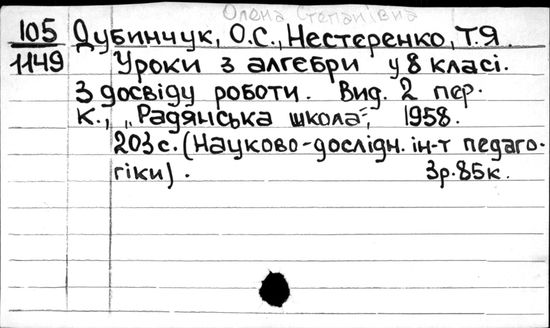 Олена Степанівна
105 Дубинчук, О.С., Нестеренко, Т.Я.
1149 Уроки з алгебри у 8 класі.
З досвіду роботи. Вид. 2 пер.
К., „Радянська школа", 1958.
203 с. (Науково-дослідн. ін-т педаго-
гіки). 3р.85к.